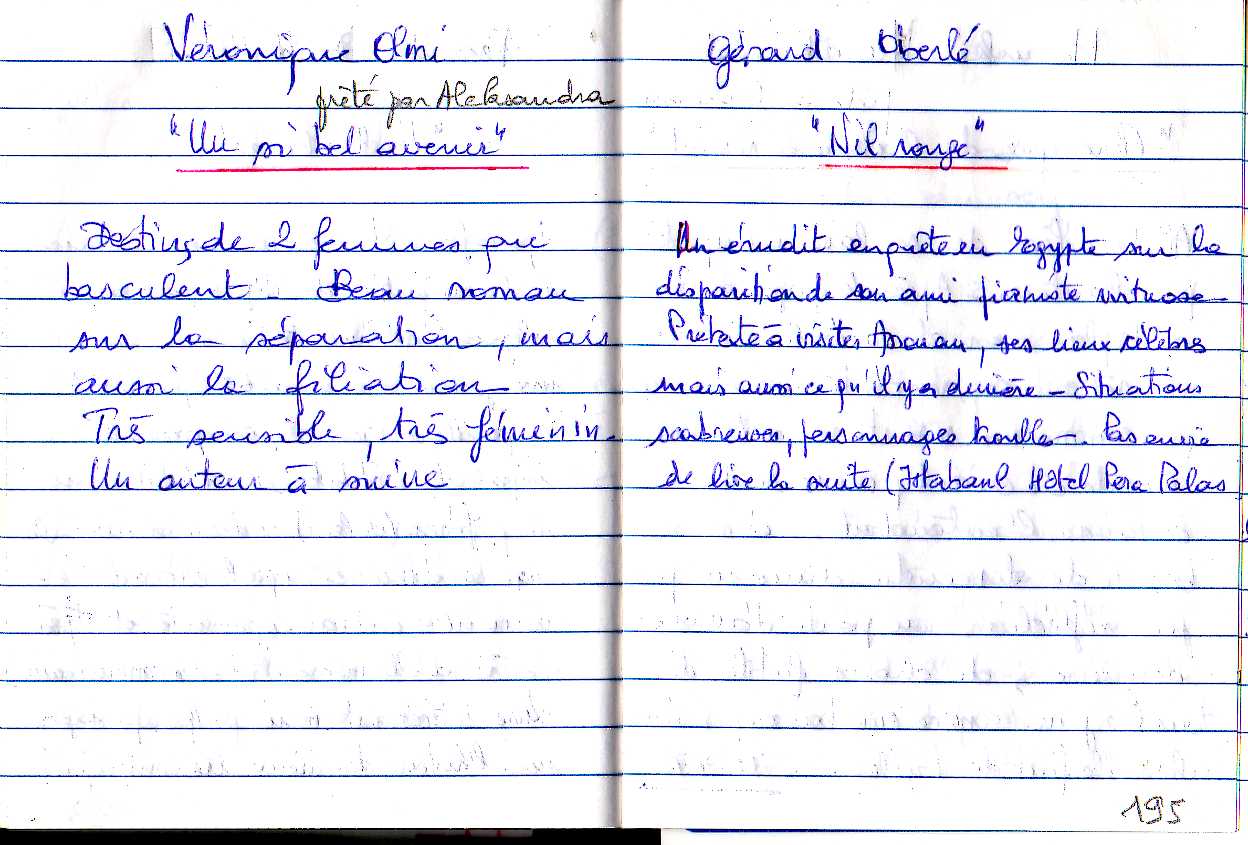 Véronique Olmi
prêté par Aleksandra
"Un si bel avenir"
Destins de 2 femmes qui
basculent - Beau roman
sur la séparation, mais
aussi la filiation
Très sensible, très féminin.
Un auteur à suivre
Gérard Oberlé
"Nil rouge"
Un érudit enquête en Egypte sur la
disparition de son ami pianiste virtuose -
Prétexte à visiter Assouan, ses lieux célèbres
mais aussi ce qu'il y a derrière - Situations
scabreuses, personnages troubles -. Pas envie
de lire la suite (Istabanl Hôtel Pera Palas
195